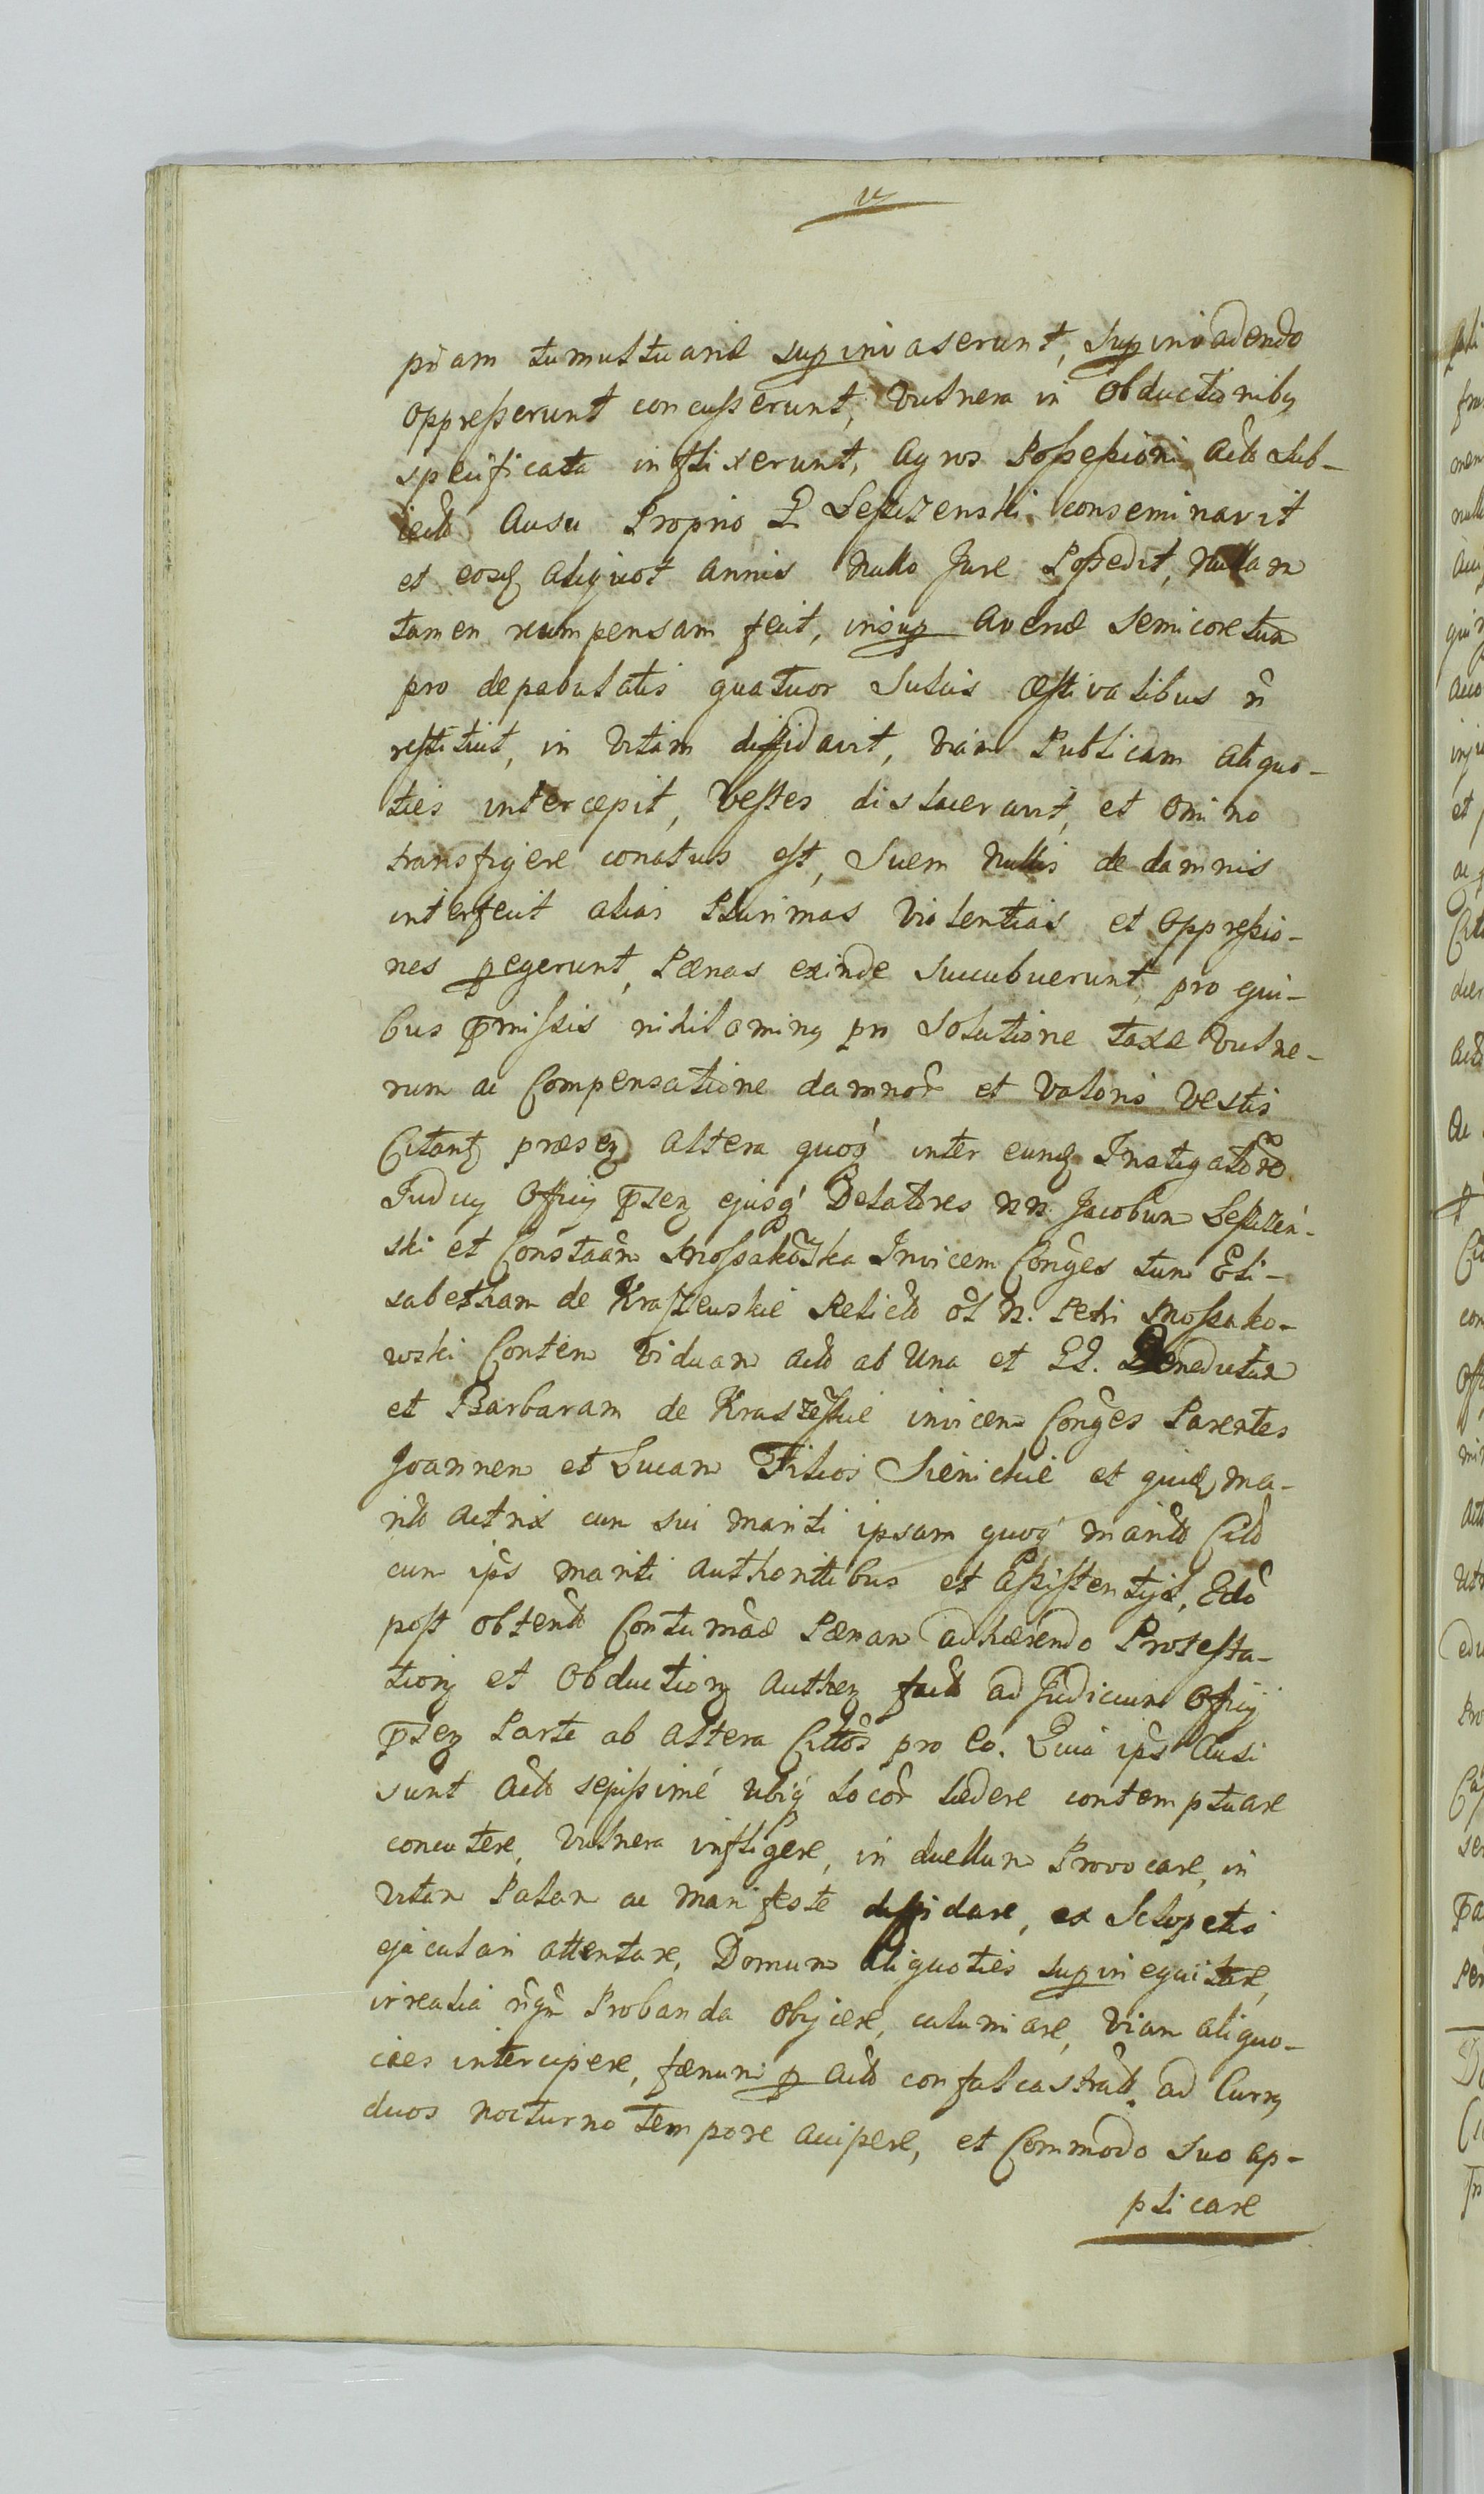 priam tumultuarie supinvaserunt, supinvadendo
oppresserunt concusserunt, vulnera in obductionibus
specificata inflixerunt, agros Possessioni acto sub-
iecto ausu Proprio G. Lesczenski conseminavit
et eosq aliquot annis nullo Jure Possedit, nullam
tamen recumpensam fecit, insup avenæ semicoretum
pro depabulatis quatuor sulcis æstivalibus n
restituit, in vitam diffidavit, viam Publicam aliquo-
ties intercepit, vestes dislaceravit, et omino
transfigere conatus est, suem nullis de damnis
interfecit alias Plurimas violentias et oppressio-
nes pegerunt, Pænas exinde succubuerunt, pro qui-
bus pmissis nihilominus pro solutione taxæ vulne-
rum ac Compensatione damnor et valoris vestis
Citant præsen altera quoq inter eund Instigatore
Judicy Officy psen ejusq Delatores NN. Jacobum Lesczen-
ski et Constaam Mossakoska Invicem Conges tum Eli-
sabetham de Kraszewskie Relicto ol N. Petri Mossako-
wski Conten viduam acto ab una et GG. Benedictum
et Barbaram de Kraszeskie invicem Conges Parentes
Joannem et Lucam Filios Sienickie et quid ma-
rito actrix cum sui mariti ipsam quoq marito Cito
cum ips mariti authoritibus et assistentijs, Edo
post obtento Contumae Pænam adhærendo Protesta-
tion et obduction authen facto ad Judicium Officij
psen Parte ab altera Cittos pro eo. Quia ips ausi
sunt acto sepissimé ubiq locor lædere contemptuare
concutere, vulnera infligere, in duellum Provocare, in
vitam Palam ac manifeste diffidare, ex sclopetis
ejaculari attentare, Domum aliquoties supinequitare,
irrealia nqm Probanda obijcere, calumiare, viam aliquo-
cies intercipere, fænum p acto confalcastrato ad Currus
duos nocturno tempore accipere, et Commodo suo ap-
plicare